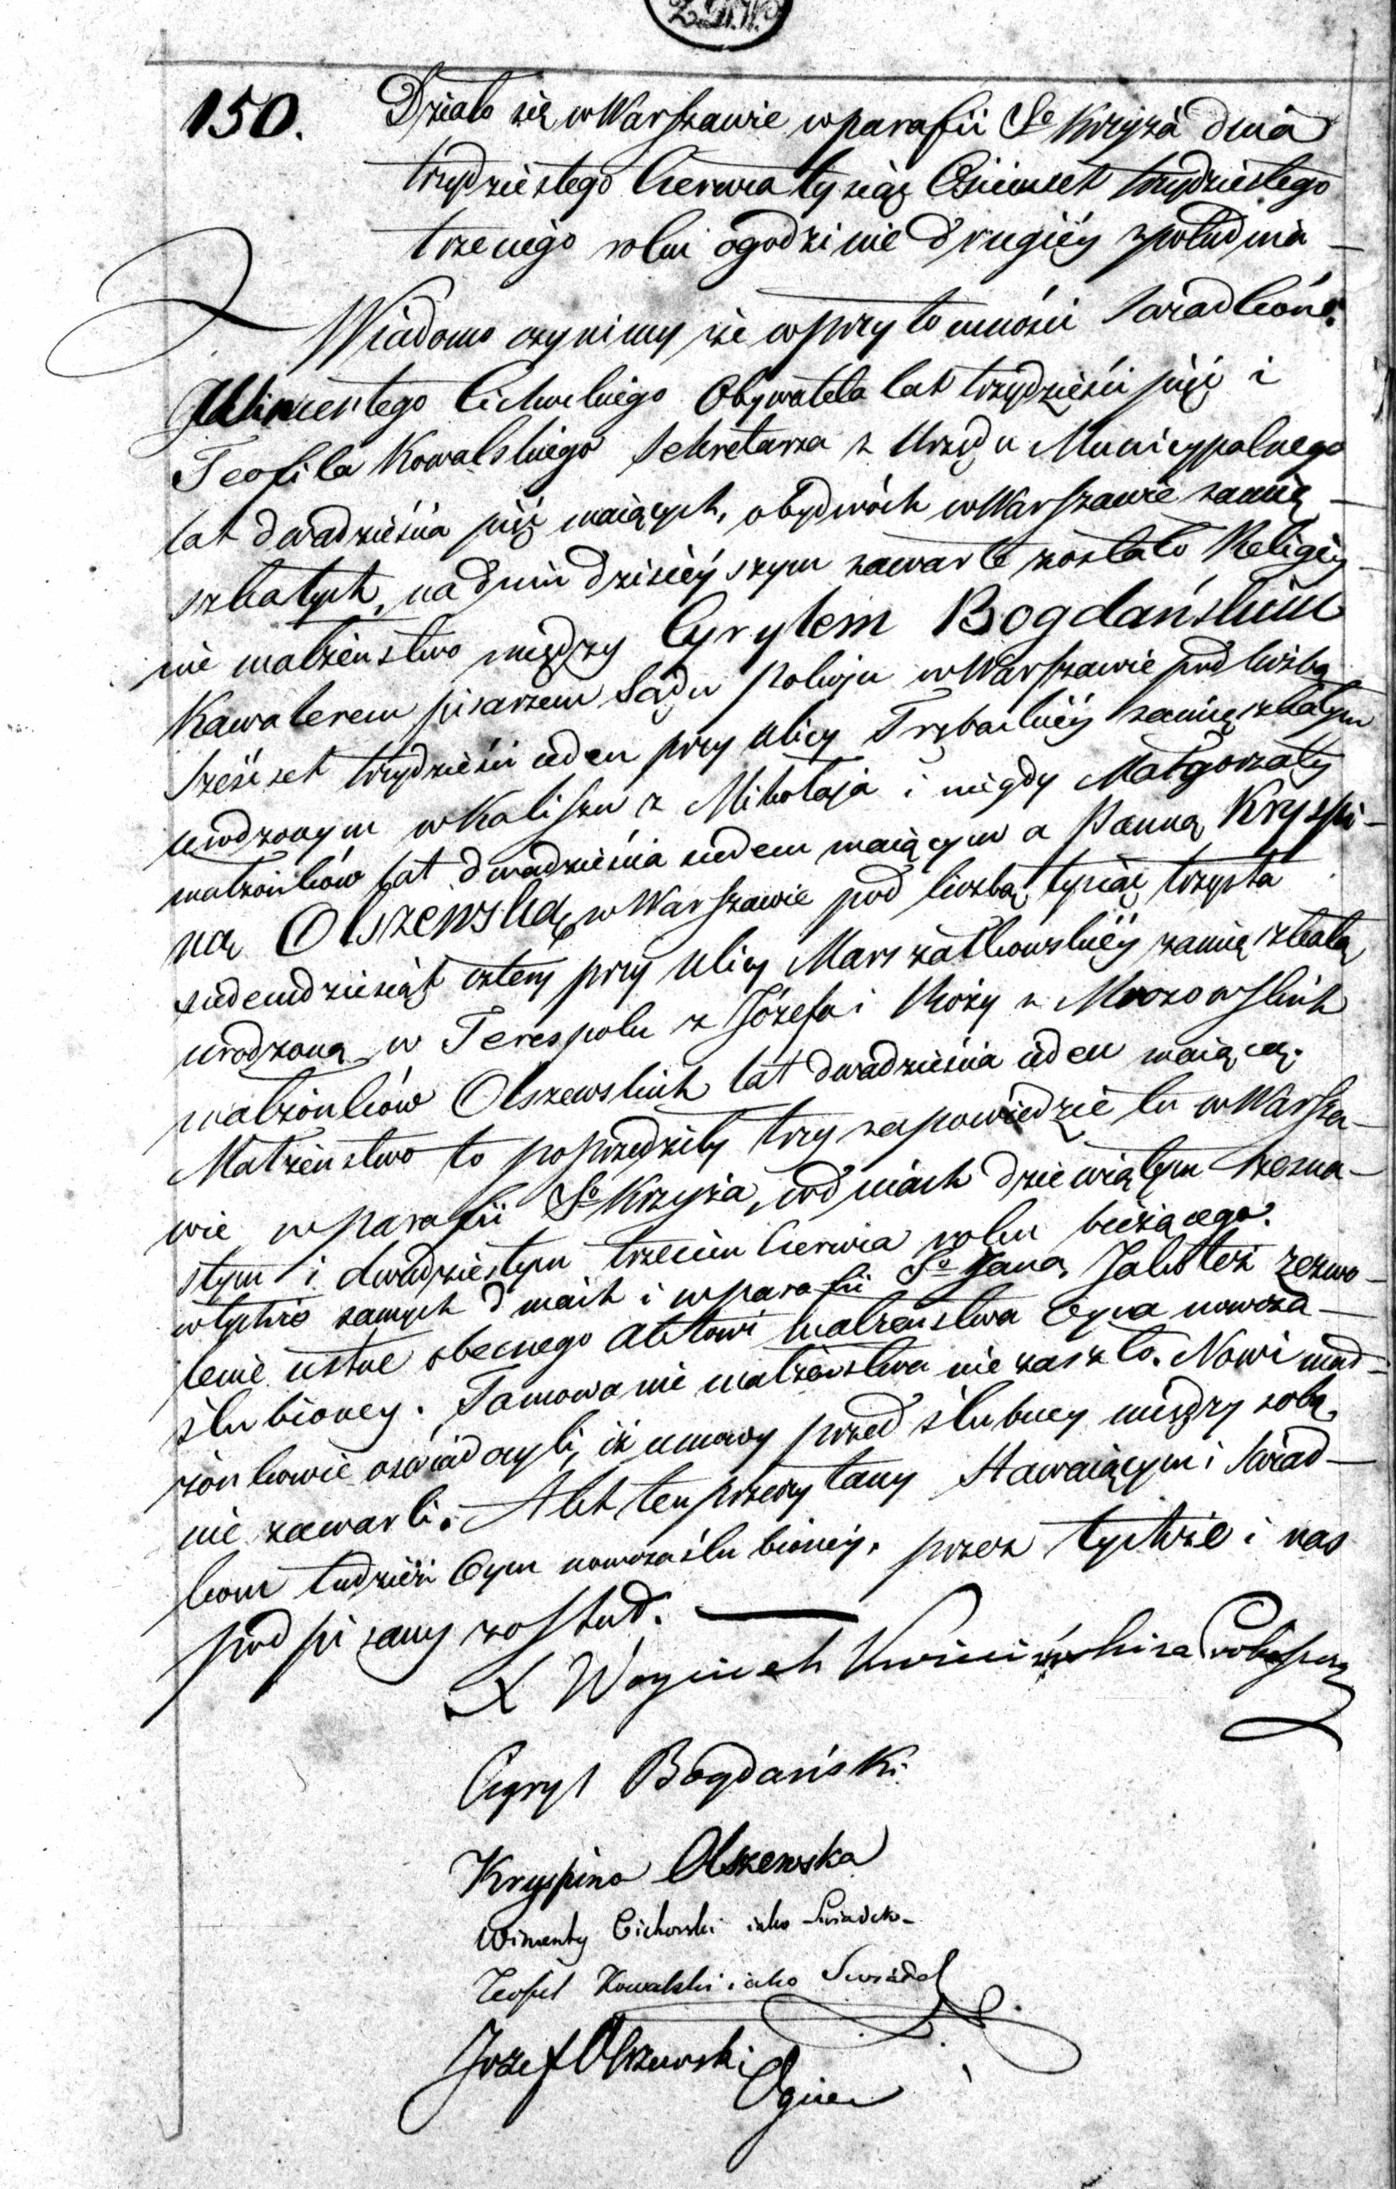 150.
Działo się w Warszawie w parafii Sº Krzyża dnia
trzydziestego Czerwca tysiąc Ośiemset trzydziestego
trzeciego roku o godzinie drugiéy z południa
Wiadomo czynimy że w przytomności Swiadków:
Wincentego Cichockiego Obywatela lat trzydzieści pięć i
Teofila Kowalskiego Sekretarza z Urzędu Municypalnego
lat dwadzieścia pięć maiących, obydwóch w Warszawie zamię
szkałych, na dniu dzisiéyszym zawarte zostało Religiy
nie małżenstwo między Cyrylem Bogdańskim
Kawalerem pisarzem Sądu policyi w Warszawie pod liczbą
sześćset trzydzieści ieden przy ulicy Trębackiéy zamięszkałym
urodzonym w Kaliszu z Mikołaja i niegdy Małgorzaty
małżonków lat dwadzieścia siedem maiącym a Panną Kryspi-
ną Olszewską w Warszawie pod liczbą tysiąc trzysta
siedemdziesiąt cztery przy ulicy Marszałkowskiéy zamięszkałą
urodzoną w Terespolu z Józefa i Róży z Mrozowskich
małżonków Olszewskich lat dwadzieścia ieden maiącą.
Małżenstwo to poprzedziły trzy zapowiedzie tu w Warsza-
wie w parafii Sº Krzyża, w dniach dziewiątym szesna-
stym i dwudziestym trzecim Czerwca roku bieżącego.
w tychże samych dniach i w parafii Sº Jana, Jakoteż zezwo-
lenie ustne obecnego aktowi małżenstwa Oyca nowoza-
ślubioney. Tamowanie małżenstwa nie zaszło. Nowi mał-
żonkowie oświadczyli, iż umowy przedślubney między sobą
nie zawarli. Akt ten przeczytany Stawaiącym i Swiad-
kom tudzież Oycu nowozaślubionéy, przez tychże i nas
podpisany został.
X Woyciech
Cyryl Bogdański
Kryspina Olszewska
Wincenty Cichocki iako Swiadek
Teofil Kowalski iako Swiadek
Jozef Olszewski
Oyciec